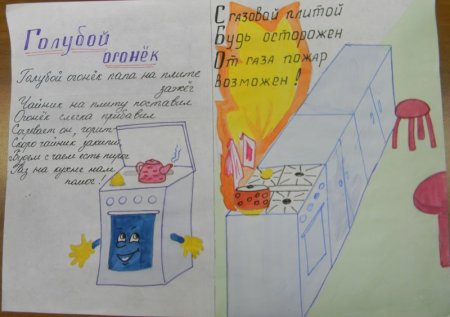 Голубой
огонёк
Голубой огонёк папа на плите
зажёг
Чайник на плиту поставил
Огонёк слегка прибавил
Скоро чайник закипит
Будем с чаем есть пирог
Газ на кухне нам
помог!
С газовой плитой
Будь осторожен
От газа пожар
возможен!